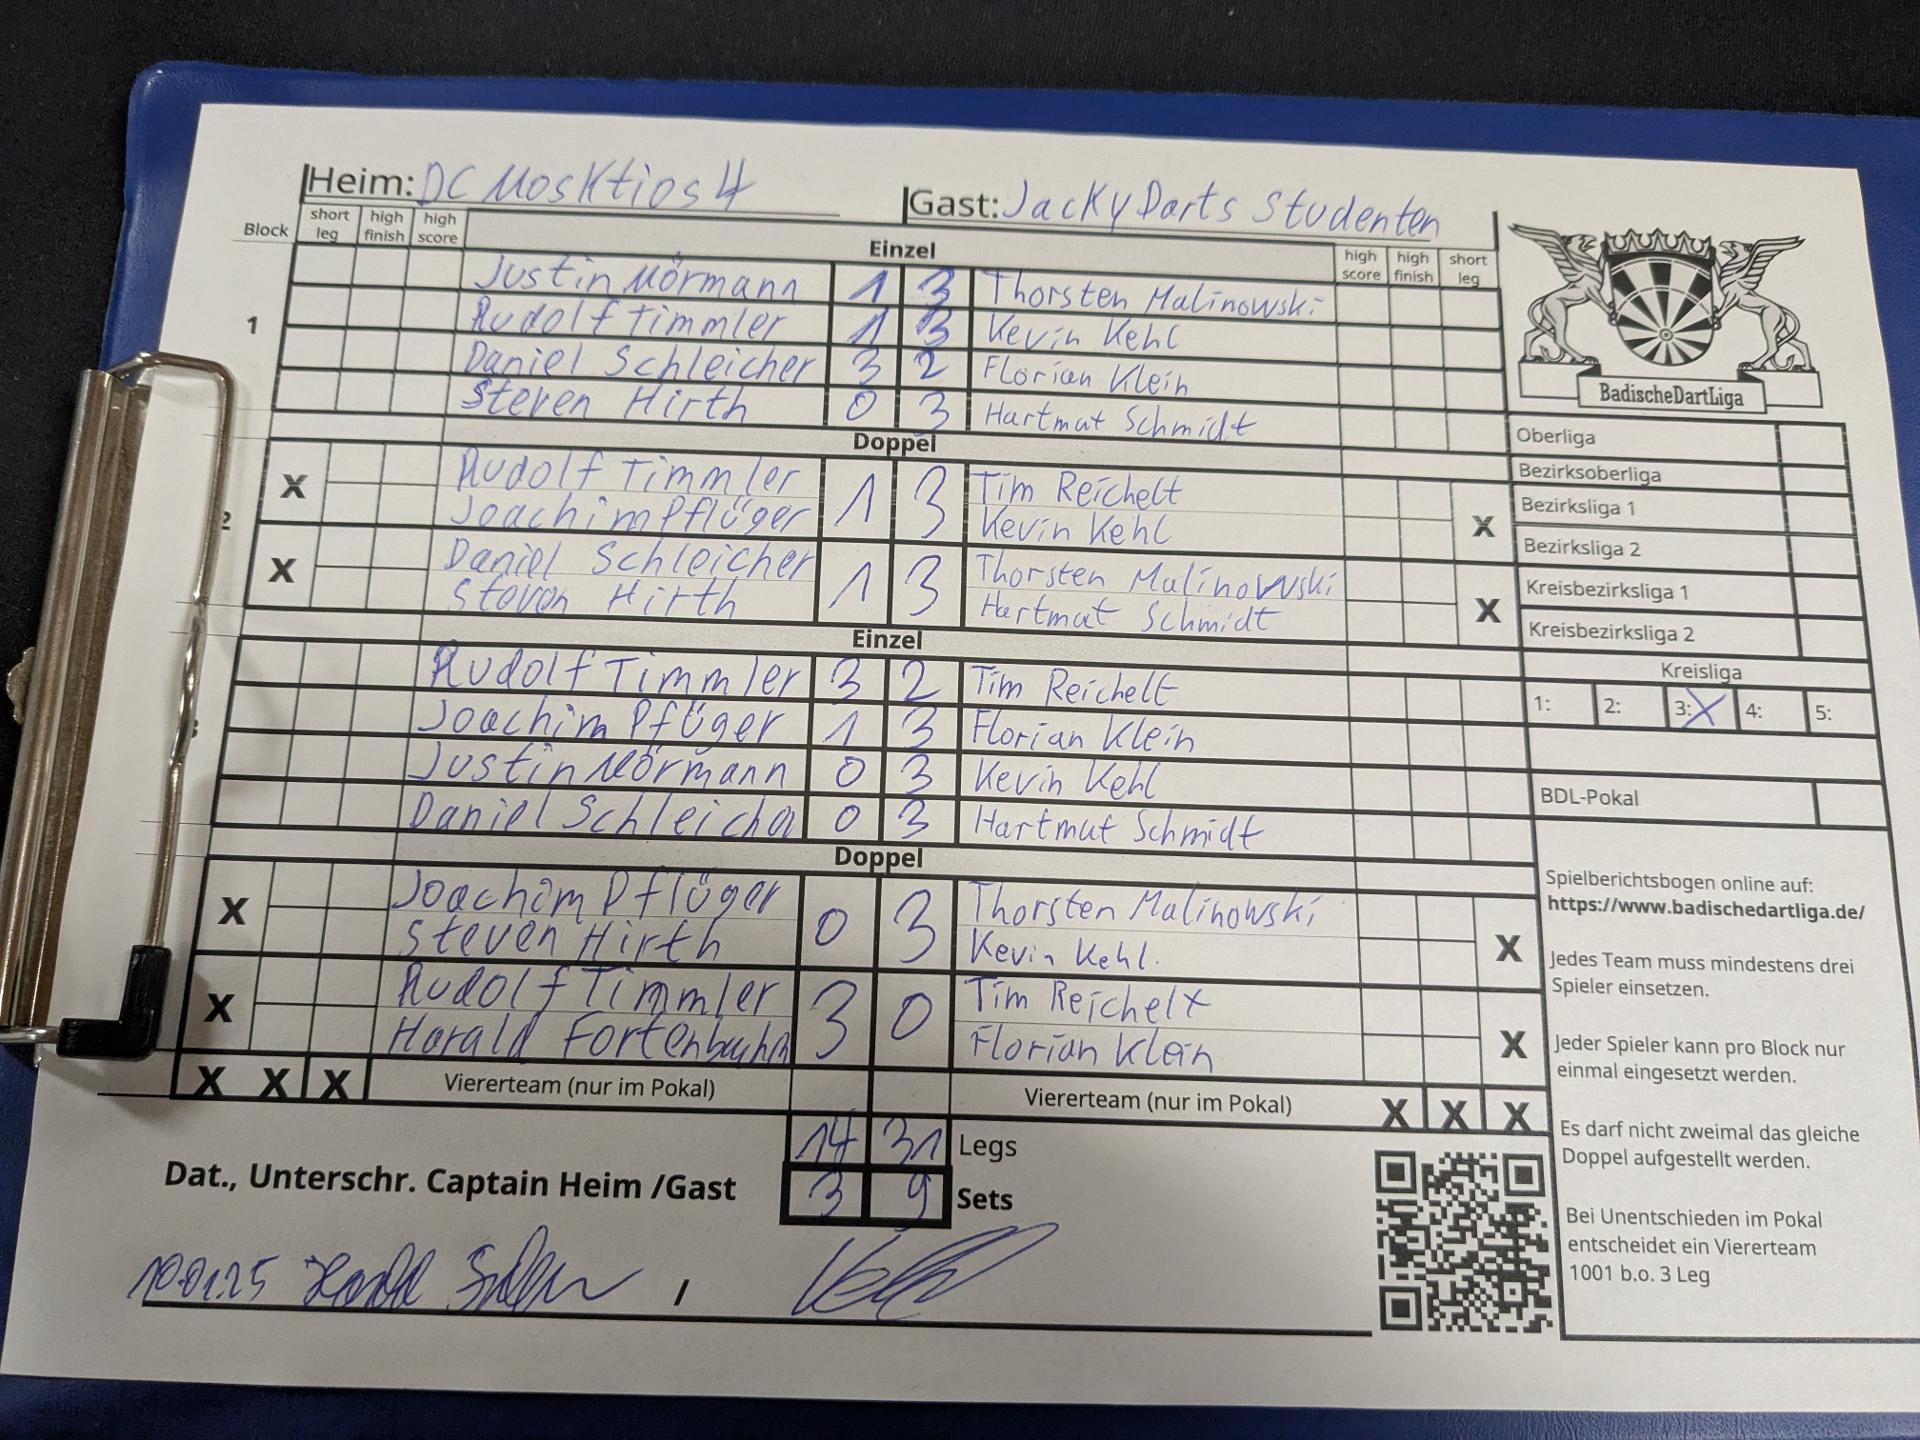 Heim: DC Mosktios 4 Gast: Jacky Darts Studenten
Block short leg high finish high score Einzel high score high finish short leg
Justin Mörmann 1 3 Thorsten Malinowski
1 Rudolf Timmler 1 3 Kevin Kehl
Daniel Schleicher 3 2 Florian Klein
Steven Hirth 0 3 Hartmut Schmidt
Doppel
X Rudolf Timmler 1 3 Tim Reichelt X
2 Joachim Pflüger Kevin Kehl
X Daniel Schleicher 1 3 Thorsten Malinowski X
Steven Hirth Hartmut Schmidt
Einzel
Rudolf Timmler 3 2 Tim Reichelt
Joachim Pflüger 1 3 Florian Klein
Justin Mörmann 0 3 Kevin Kehl
Daniel Schleicher 0 3 Hartmut Schmidt
Doppel
X Joachim Pflüger 0 3 Thorsten Malinowski X
Steven Hirth Kevin Kehl.
X Rudolf Timmler 3 0 Tim Reichelt X
Harald Fortenbuhn Florian Klein
X X X Viererteam (nur im Pokal) Viererteam (nur im Pokal) X X X
14 31 Legs
Dat., Unterschr. Captain Heim /Gast 3 9 Sets
10.01.25 /
BadischeDartLiga
Oberliga
Bezirksoberliga
Bezirksliga 1
Bezirksliga 2
Kreisbezirksliga 1
Kreisbezirksliga 2
Kreisliga
1: 2: 3: X 4: 5:
BDL-Pokal
Spielberichtsbogen online auf:
https://www.badischedartliga.de/
Jedes Team muss mindestens drei
Spieler einsetzen.
Jeder Spieler kann pro Block nur
einmal eingesetzt werden.
Es darf nicht zweimal das gleiche
Doppel aufgestellt werden.
Bei Unentschieden im Pokal
entscheidet ein Viererteam
1001 b.o. 3 Leg